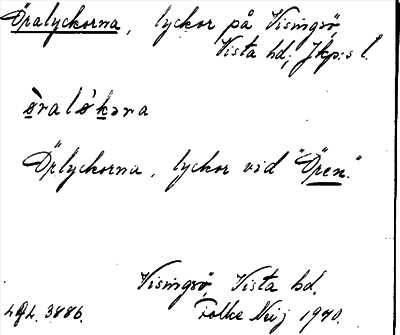 Öralyckorna, lyckor på Visingsö,
Vista hd; Jkp:s l.
òralókəra
Örlyckorna, lyckor vid "Ören."
Visingsö, Vista hd.
LGL. 3886. Folke Nij 1940.